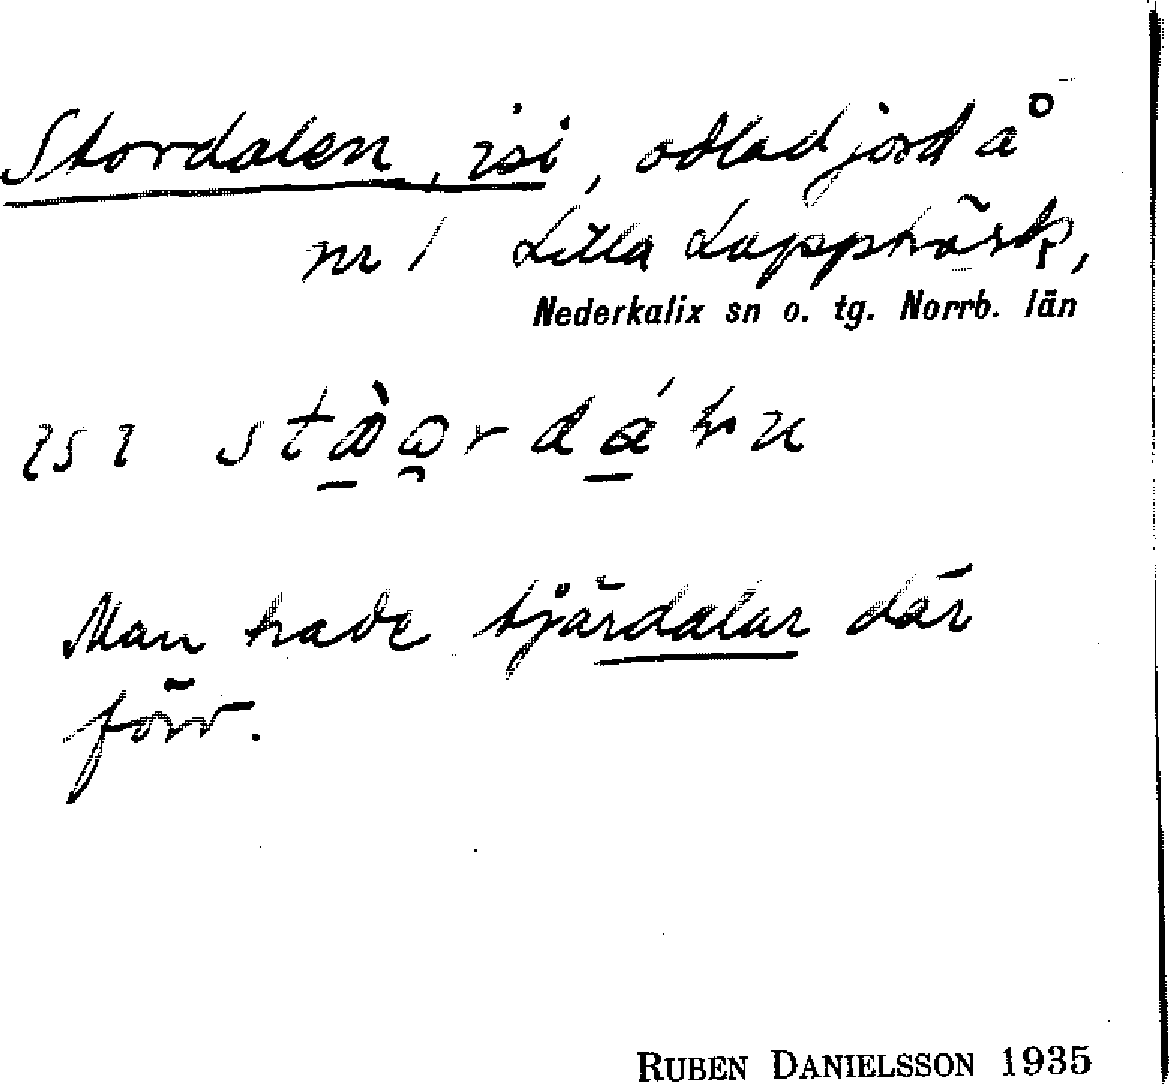 Stordalen, isi, odlad jord å
nr 1 Lilla Lappträsk,
Nederkalix sn o. tg. Norrb. län
Man hade tjärdalar där
förr.
RUBEN DANIELSSON 1935